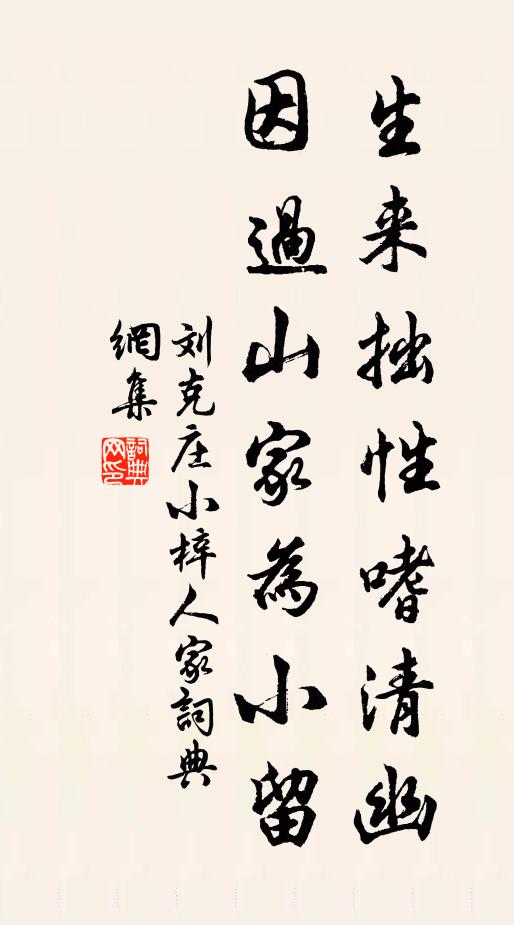 生来拙性嗜清幽
因過山家為小留
刘克庄小梓人家詞典
網集
詞典
网印